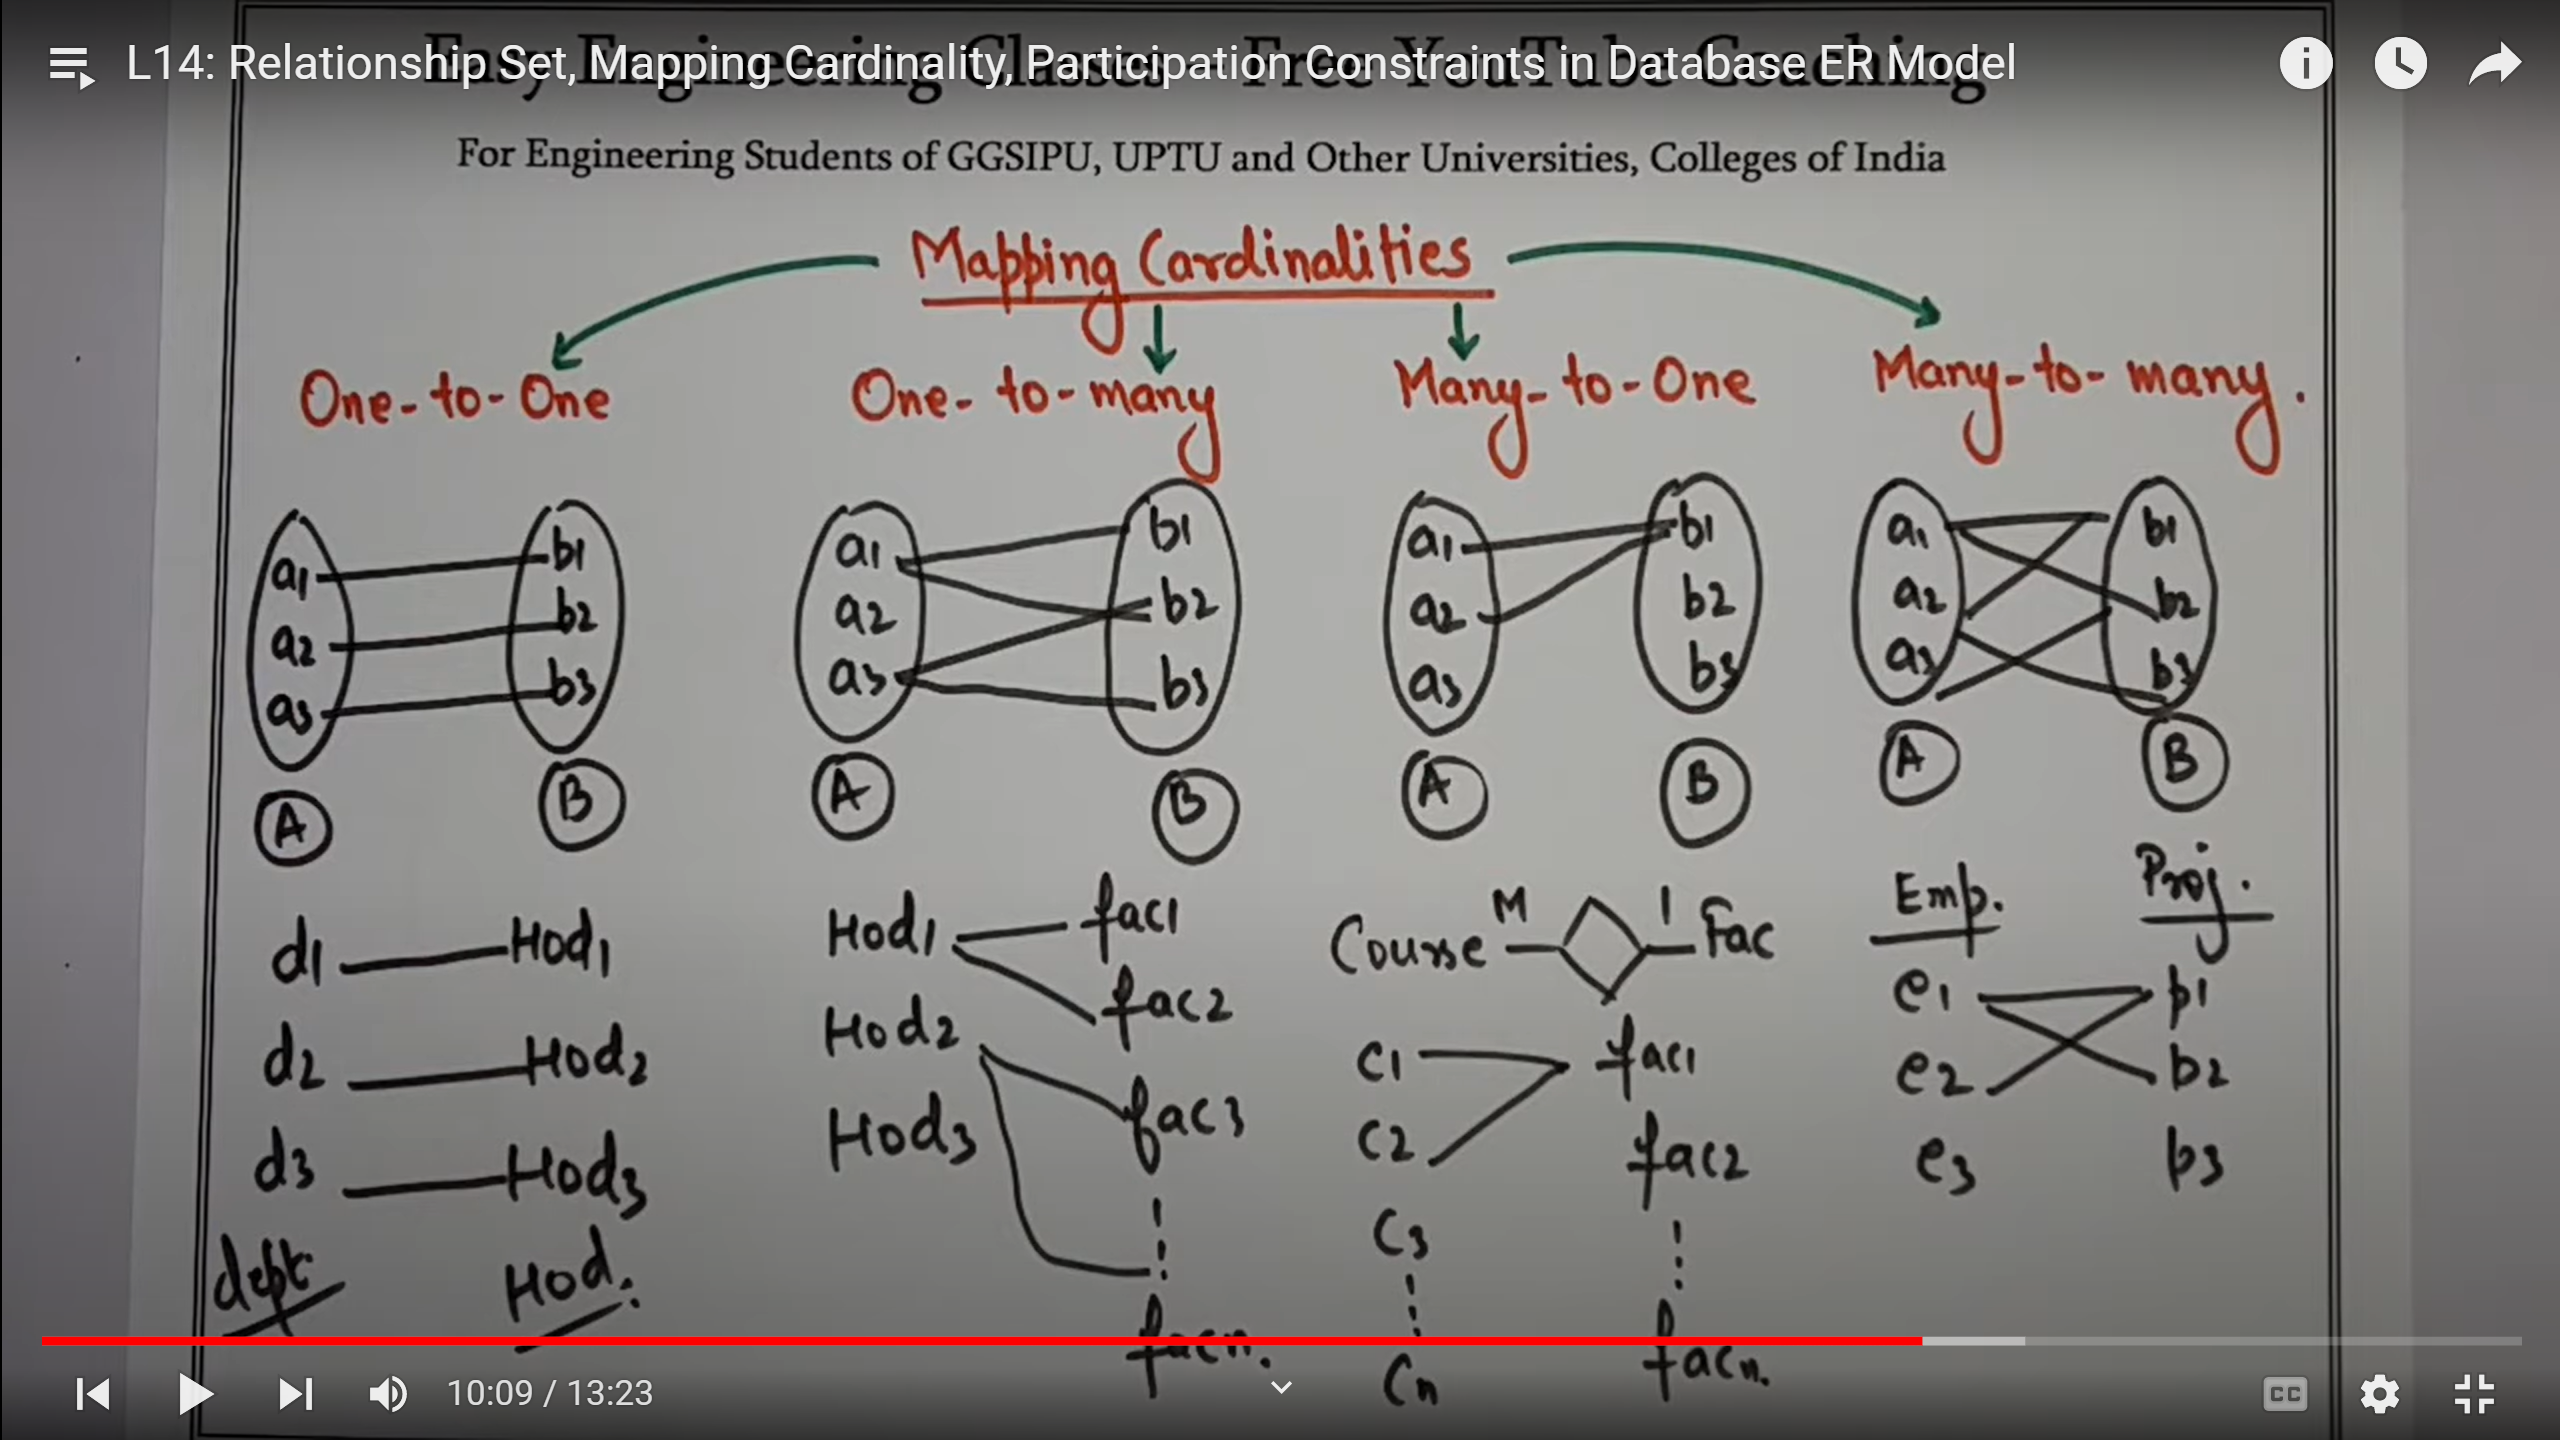 L14: Relationship Set, Mapping Cardinality, Participation Constraints in Database ER Model
Easy Engineering Classes - Free YouTube Coaching
For Engineering Students of GGSIPU, UPTU and Other Universities, Colleges of India
Mapping Cardinalities
One-to-One
a1 b1
a2 b2
a3 b3
A B
d1 Hod1
d2 Hod2
d3 Hod3
dept Hod.
One-to-many
a1 b1
a2 b2
a3 b3
A B
Hod1 fac1
fac2
Hod2
fac3
Hod3
facn.
Many-to-One
a1 b1
a2 b2
a3 b3
A B
Course M 1 Fac
C1 fac1
C2 fac2
C3
Cn facn.
Many-to-many.
a1 b1
a2 b2
a3 b3
A B
Emp. Proj.
e1 p1
e2 p2
e3 p3
10:09 / 13:23
CC